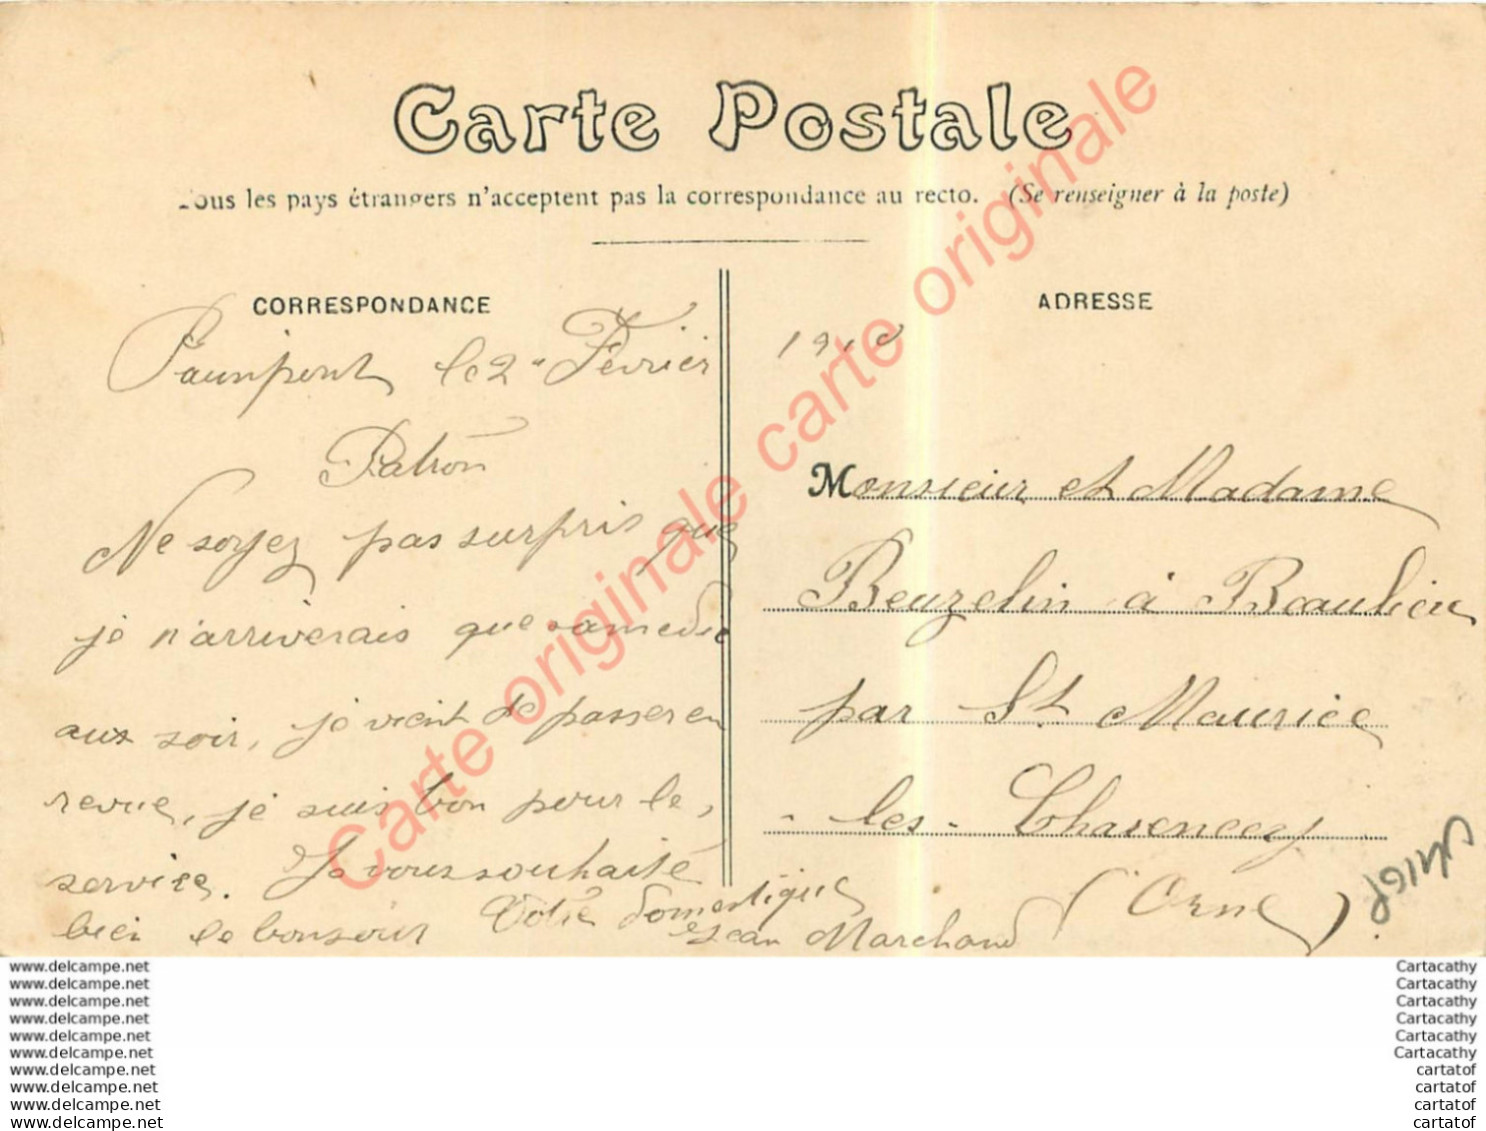 Carte Postale
Tous les pays étrangers n'acceptent pas la correspondance au recto. (Se renseigner à la poste)
CORRESPONDANCE
Paunpont le 2 Février 1910
Patron
Ne soyez pas surpris que
je n'arriverais que samedi
aux soir, je vient de passer en
revue, je suis bon pour le,
service. Je vous souhaite
bien le bonsoir Votre domestique
Jean Marchand
ADRESSE
Monsieur et Madame
Beuzelin à Beaulieu
par St Maurice
les Charencey
(Orne)
Carte originale carte originale carte originale
www.delcampe.net Cartacathy
www.delcampe.net Cartacathy
www.delcampe.net Cartacathy
www.delcampe.net Cartacathy
www.delcampe.net Cartacathy
www.delcampe.net Cartacathy
www.delcampe.net cartatof
www.delcampe.net cartatof
www.delcampe.net cartatof
www.delcampe.net cartatof